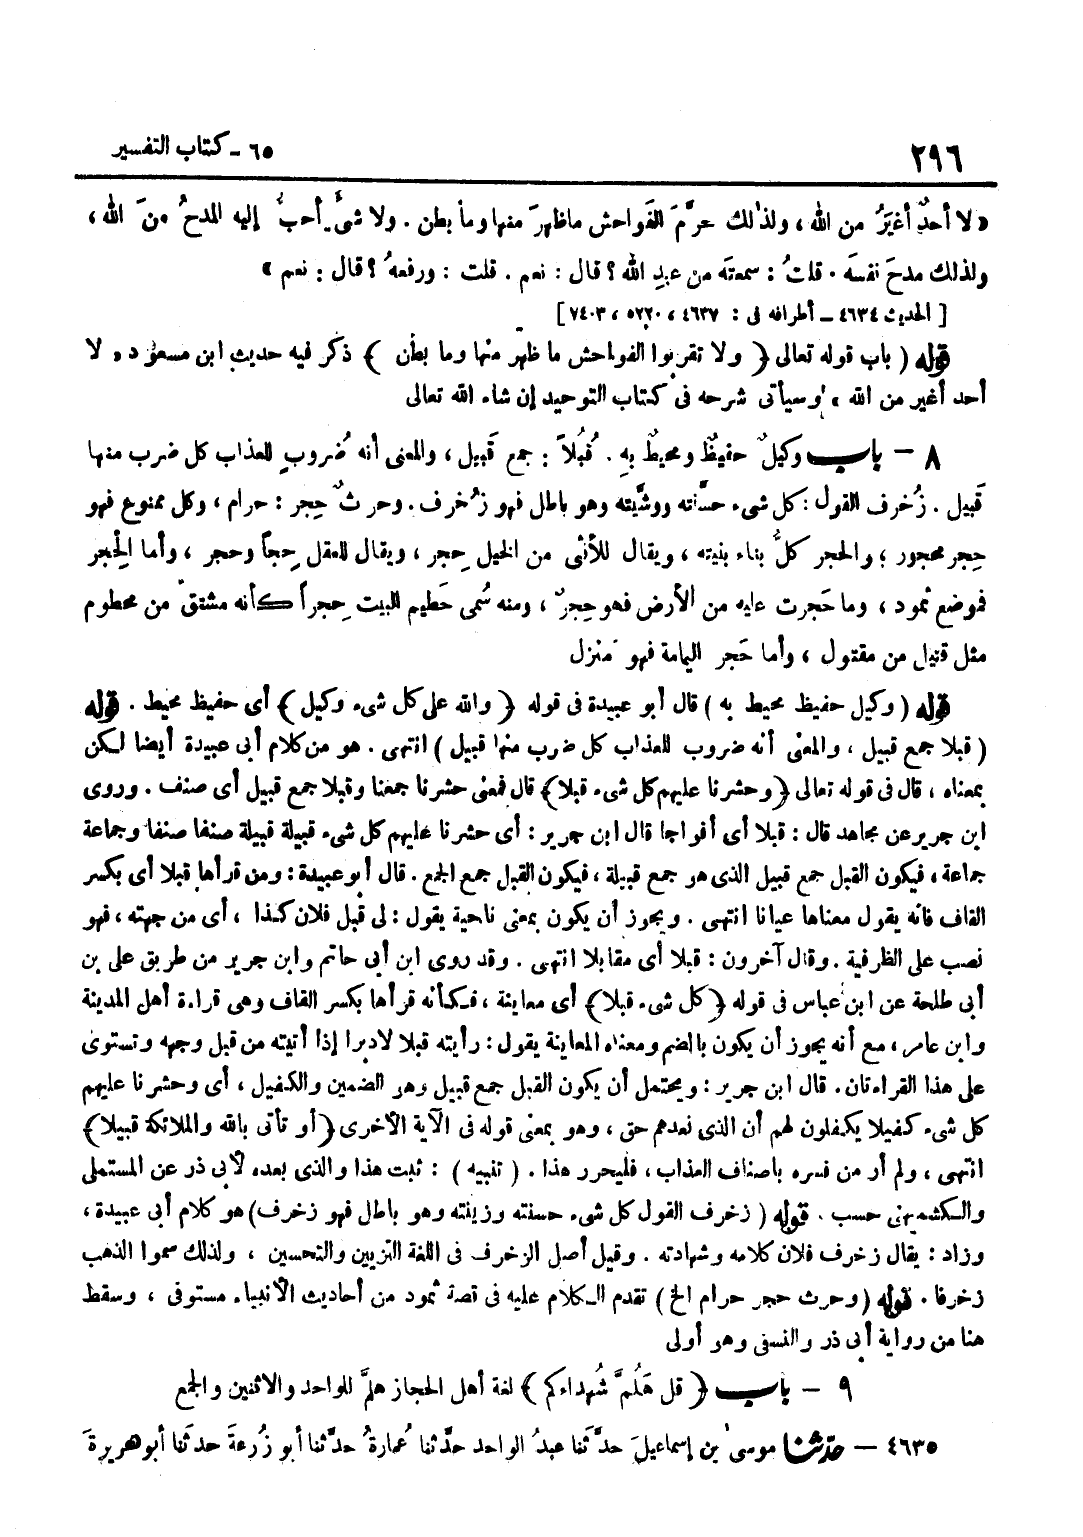 ٢٩٦
٦٥ - كتاب التفسير
« لا أحدٌ أغيَرُ من الله ، ولذلك حرَّمَ الفواحش ماظهرَ منها وما بطن . ولا شىْ أحبُّ إليه المدحُ منَ الله ،
ولذلك مدحَ نفسَه . قلتُ : سمعتَه من عبدِ الله ؟ قال : نعم . قلت : ورفعهُ ؟ قال : نعم »
[ الحديث ٤٦٣٤ ــ أطرافه فى : ٤٦٣٧ ، ٥٢٢٠ ، ٧٤٠٣ ]
قوله ( باب قوله تعالى ﴿ ولا تقربوا الفواحش ما ظهر منها وما بطن ﴾ ذكر فيه حديث ابن مسعود « لا
أحد أغير من الله » وسيأتى شرحه فى كتاب التوحيد إن شاء الله تعالى
٨ - باب وكيلٌ حفيظٌ ومحيطٌ بِهِ . قُبُلاً : جمع قَبيل ، والمعنى أنه ضُروبٌ للعذاب كل ضرب منها
قَبيل . زُخرف القول : كل شىء حسَّنته ووشَّيته وهو باطل فهو زُخرف . وحرثٌ حِجر : حرام ، وكل ممنوع فهو
حِجر محجور ؛ والحجر كلُّ بناء بنيته ، ويقال للأنثى من الخيل حِجر ، ويقال للعقل حِجاً وحجر ، وأما الحِجر
فموضع ثمود ، وما حَجرت عليه من الأرض فهو حِجرٌ ، ومنه سُمى حَطيم البيت حِجراً كأنه مشتق من محطوم
مثل قتيل من مقتول ، وأما حَجر اليمامة فهو مَنزل
قوله ( وكيل حفيظ محيط به ) قال أبو عبيدة فى قوله ﴿ والله على كل شىء وكيل ﴾ أى حفيظ محيط . قوله
( قبلا جمع قبيل ، والمعنى أنه ضروب للعذاب كل ضرب منها قبيل ) انتهى . هو من كلام أبى عبيدة أيضا لكن
بمعناه ، قال فى قوله تعالى ﴿ وحشرنا عليهم كل شىء قبلا ﴾ قال فمعنى حشرنا جمعنا وقبلا جمع قبيل أى صنف . وروى
ابن جرير عن مجاهد قال : قبلا أى أفواجا قال ابن جرير : أى حشرنا عليهم كل شىء قبيلة قبيلة صنفا صنفا وجماعة
جماعة ، فيكون القبل جمع قبيل الذى هو جمع قبيلة ، فيكون القبل جمع الجمع . قال أبو عبيدة : ومن قرأها قبلا أى بكسر
القاف فانه يقول معناها عيانا انتهى . ويجوز أن يكون بمعنى ناحية يقول : لى قبل فلان كذا ، أى من جهته ، فهو
نصب على الظرفية . وقال آخرون : قبلا أى مقابلا انتهى . وقد روى ابن أبى حاتم وابن جرير من طريق على بن
أبى طلحة عن ابن عباس فى قوله ﴿ كل شىء قبلا ﴾ أى معاينة ، فكأنه قرأها بكسر القاف وهى قراءة أهل المدينة
وابن عامر ، مع أنه يجوز أن يكون بالضم ومعناه المعاينة يقول : رأيته قبلا لادبرا إذا أتيته من قبل وجهه وتستوى
على هذا القراءتان . قال ابن جرير : ويحتمل أن يكون القبل جمع قبيل وهو الضمين والكفيل ، أى وحشرنا عليهم
كل شىء كفيلا يكفلون لهم أن الذى نعدهم حق ، وهو بمعنى قوله فى الآية الأخرى ﴿ أو تأتى بالله والملائكة قبيلا ﴾
انتهى ، ولم أر من فسره باصناف العذاب ، فليحرر هذا . ( تنبيه ) : ثبت هذا والذى بعده لأبى ذر عن المستملى
والكشميهنى حسب . قوله ( زخرف القول كل شىء حسنته وزينته وهو باطل فهو زخرف ) هو كلام أبى عبيدة ،
وزاد : يقال زخرف فلان كلامه وشهادته . وقيل أصل الزخرف فى اللغة التزيين والتحسين ، ولذلك سموا الذهب
زخرفا . قوله ( وحرث حجر حرام الخ ) تقدم الكلام عليه فى قصة ثمود من أحاديث الأنبياء مستوفى ، وسقط
هنا من رواية أبى ذر والنسفى وهو أولى
٩ - باب ﴿ قل هَلُمَّ شُهداءكم ﴾ لغة أهل الحجاز هلمَّ للواحد والاثنين والجمع
٤٦٣٥ - حدّثنا موسى بن إسماعيلَ حدَّثنا عبدُ الواحد حدَّثنا عُمارةُ حدَّثنا أبو زُرعةَ حدثنا أبوهريرةَ